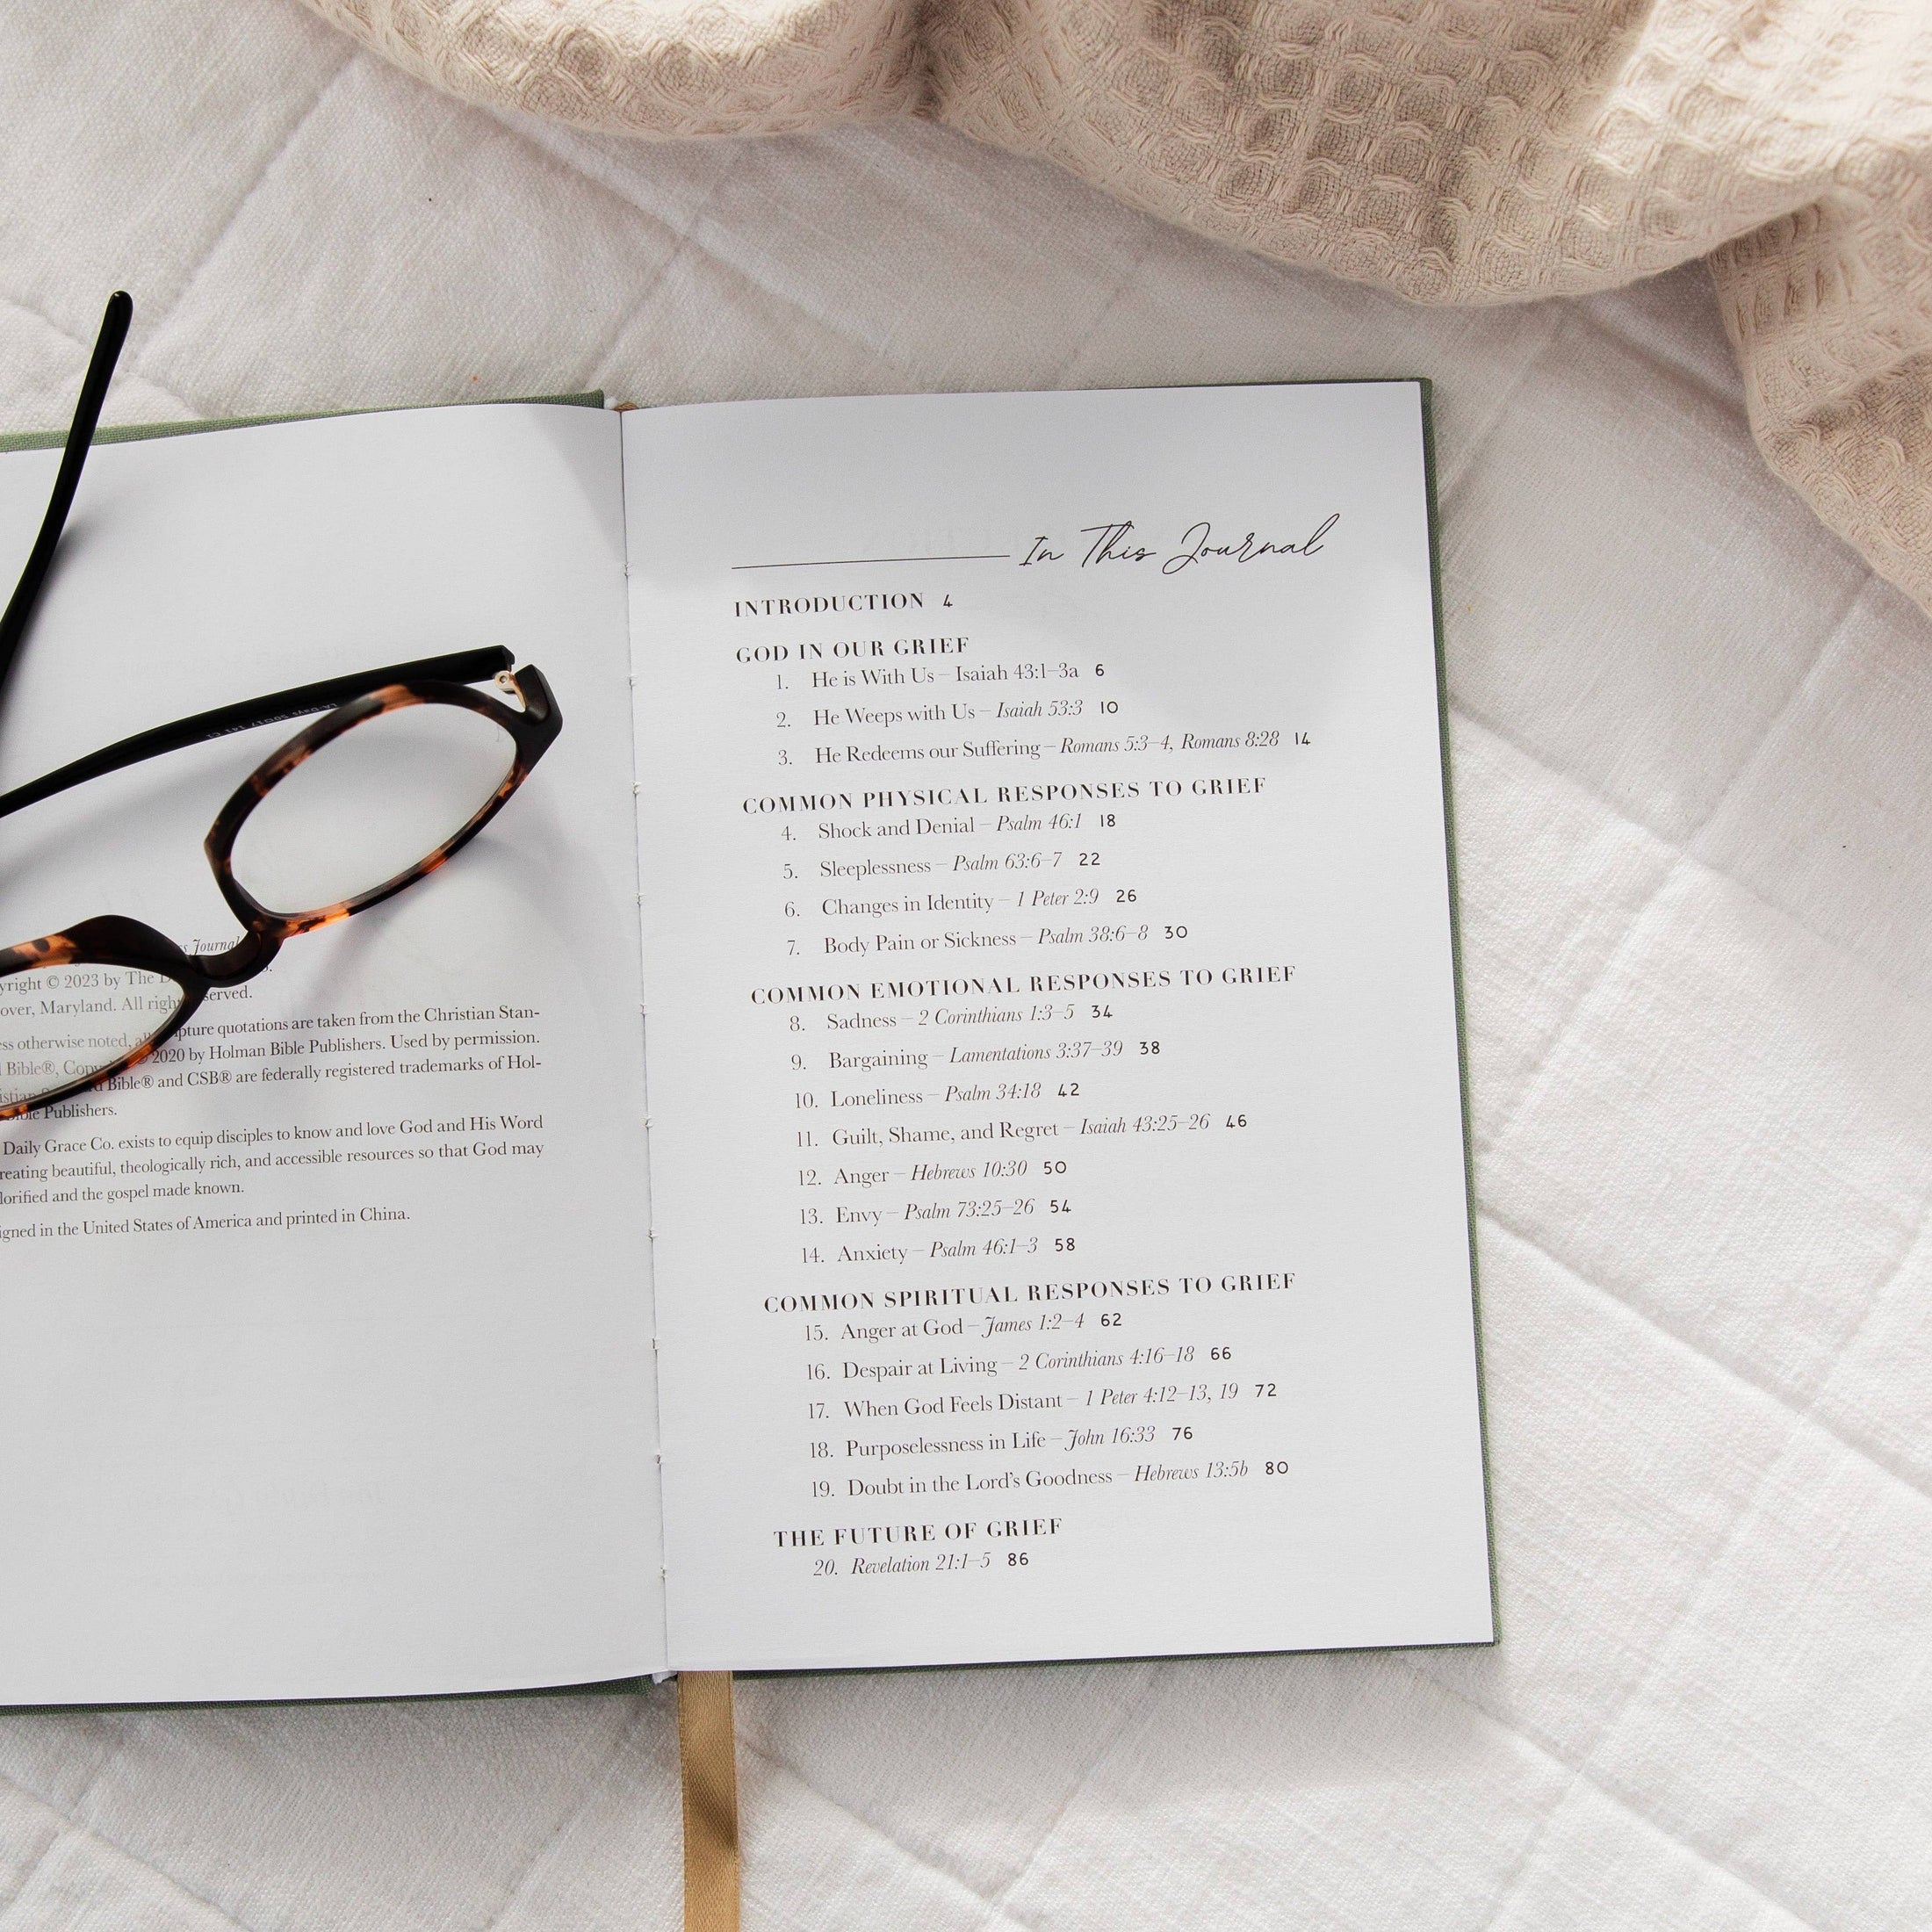 s Journal
yright © 2023 by The D
over, Maryland. All rights served.
ess otherwise noted, all pture quotations are taken from the Christian Stan-
Bible®, Cop 2020 by Holman Bible Publishers. Used by permission.
istian S d Bible® and CSB® are federally registered trademarks of Hol-
Bible Publishers.
Daily Grace Co. exists to equip disciples to know and love God and His Word
reating beautiful, theologically rich, and accessible resources so that God may
lorified and the gospel made known.
igned in the United States of America and printed in China.
In This Journal
INTRODUCTION 4
GOD IN OUR GRIEF
1. He is With Us – Isaiah 43:1–3a 6
2. He Weeps with Us – Isaiah 53:3 10
3. He Redeems our Suffering – Romans 5:3–4, Romans 8:28 14
COMMON PHYSICAL RESPONSES TO GRIEF
4. Shock and Denial – Psalm 46:1 18
5. Sleeplessness – Psalm 63:6–7 22
6. Changes in Identity – 1 Peter 2:9 26
7. Body Pain or Sickness – Psalm 38:6–8 30
COMMON EMOTIONAL RESPONSES TO GRIEF
8. Sadness – 2 Corinthians 1:3–5 34
9. Bargaining – Lamentations 3:37–39 38
10. Loneliness – Psalm 34:18 42
11. Guilt, Shame, and Regret – Isaiah 43:25–26 46
12. Anger – Hebrews 10:30 50
13. Envy – Psalm 73:25–26 54
14. Anxiety – Psalm 46:1–3 58
COMMON SPIRITUAL RESPONSES TO GRIEF
15. Anger at God – James 1:2–4 62
16. Despair at Living – 2 Corinthians 4:16–18 66
17. When God Feels Distant – 1 Peter 4:12–13, 19 72
18. Purposelessness in Life – John 16:33 76
19. Doubt in the Lord's Goodness – Hebrews 13:5b 80
THE FUTURE OF GRIEF
20. Revelation 21:1–5 86